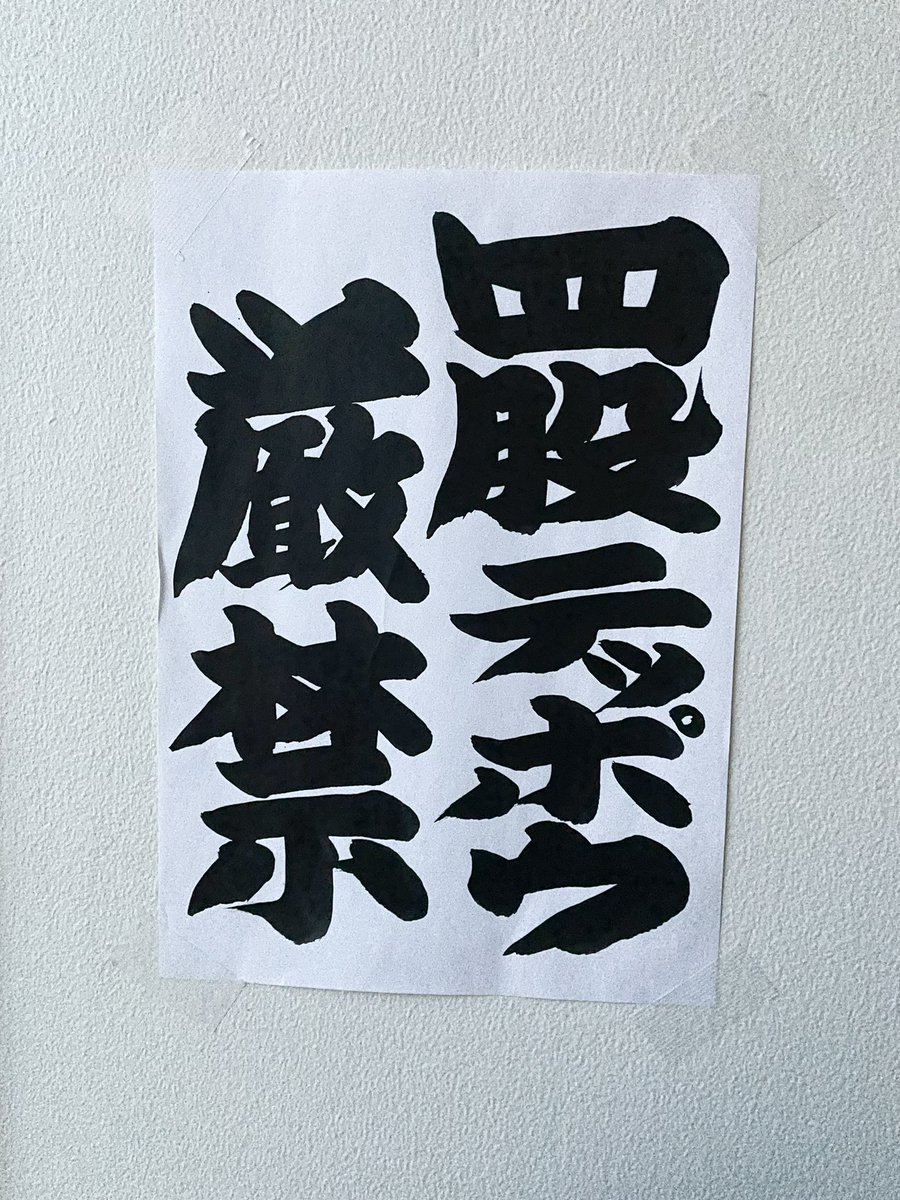 四股テッポウ
厳禁